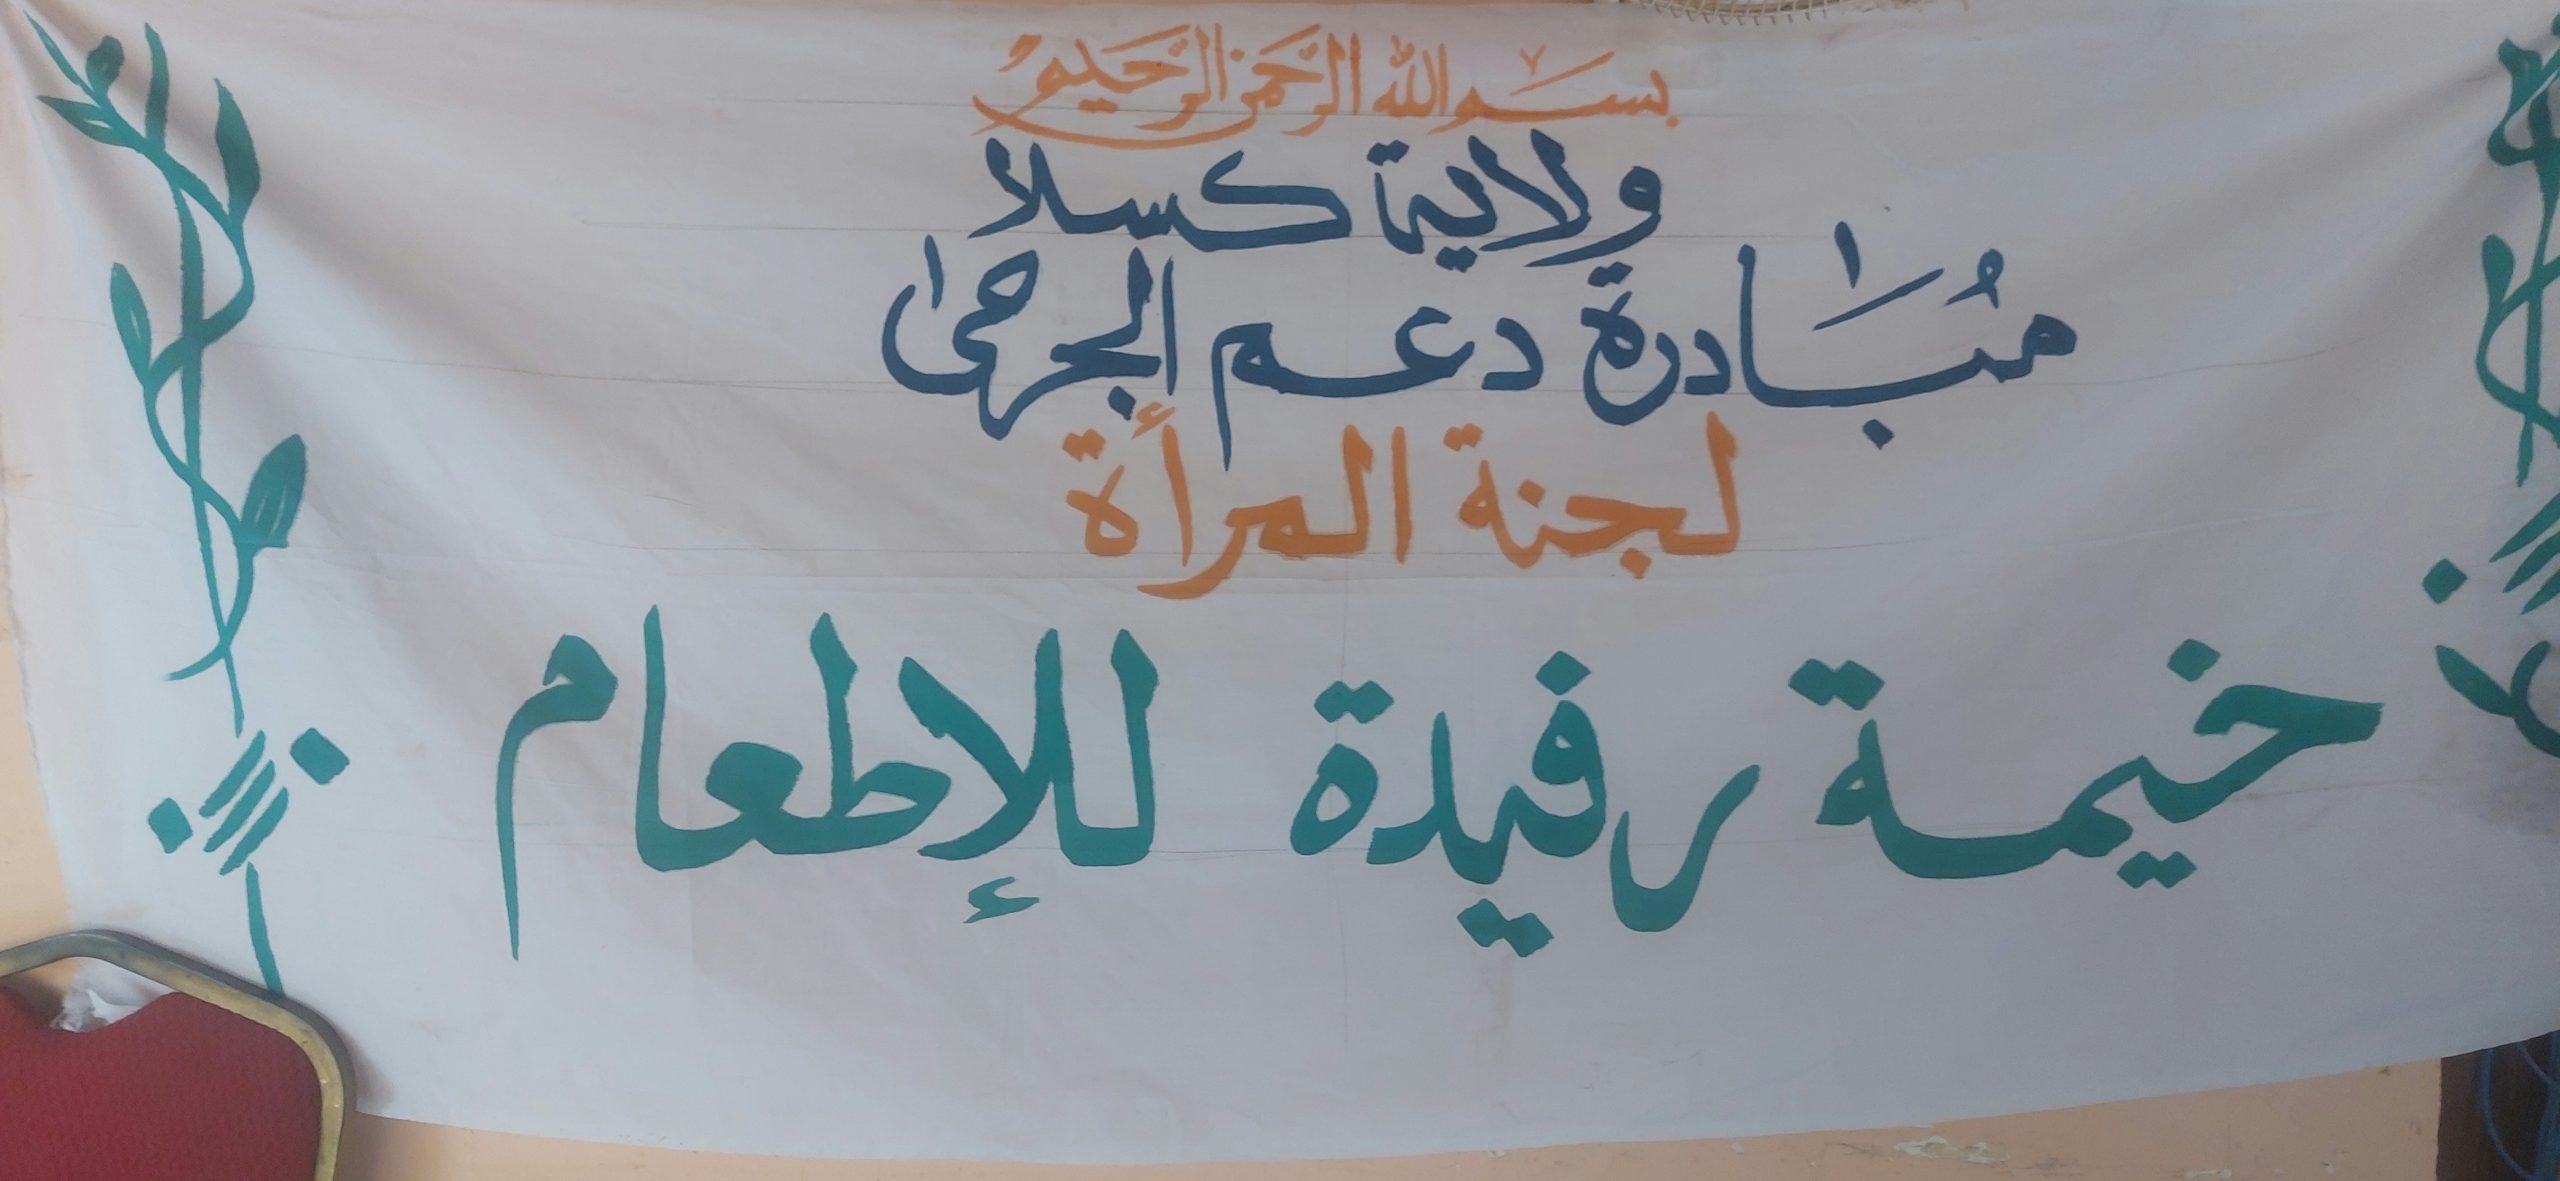 بسم الله الرحمن الرحيم
ولاية كسلا
مُبَادرة دعم الجرحى
لجنة المرأة
خيمة رفيدة للإطعام